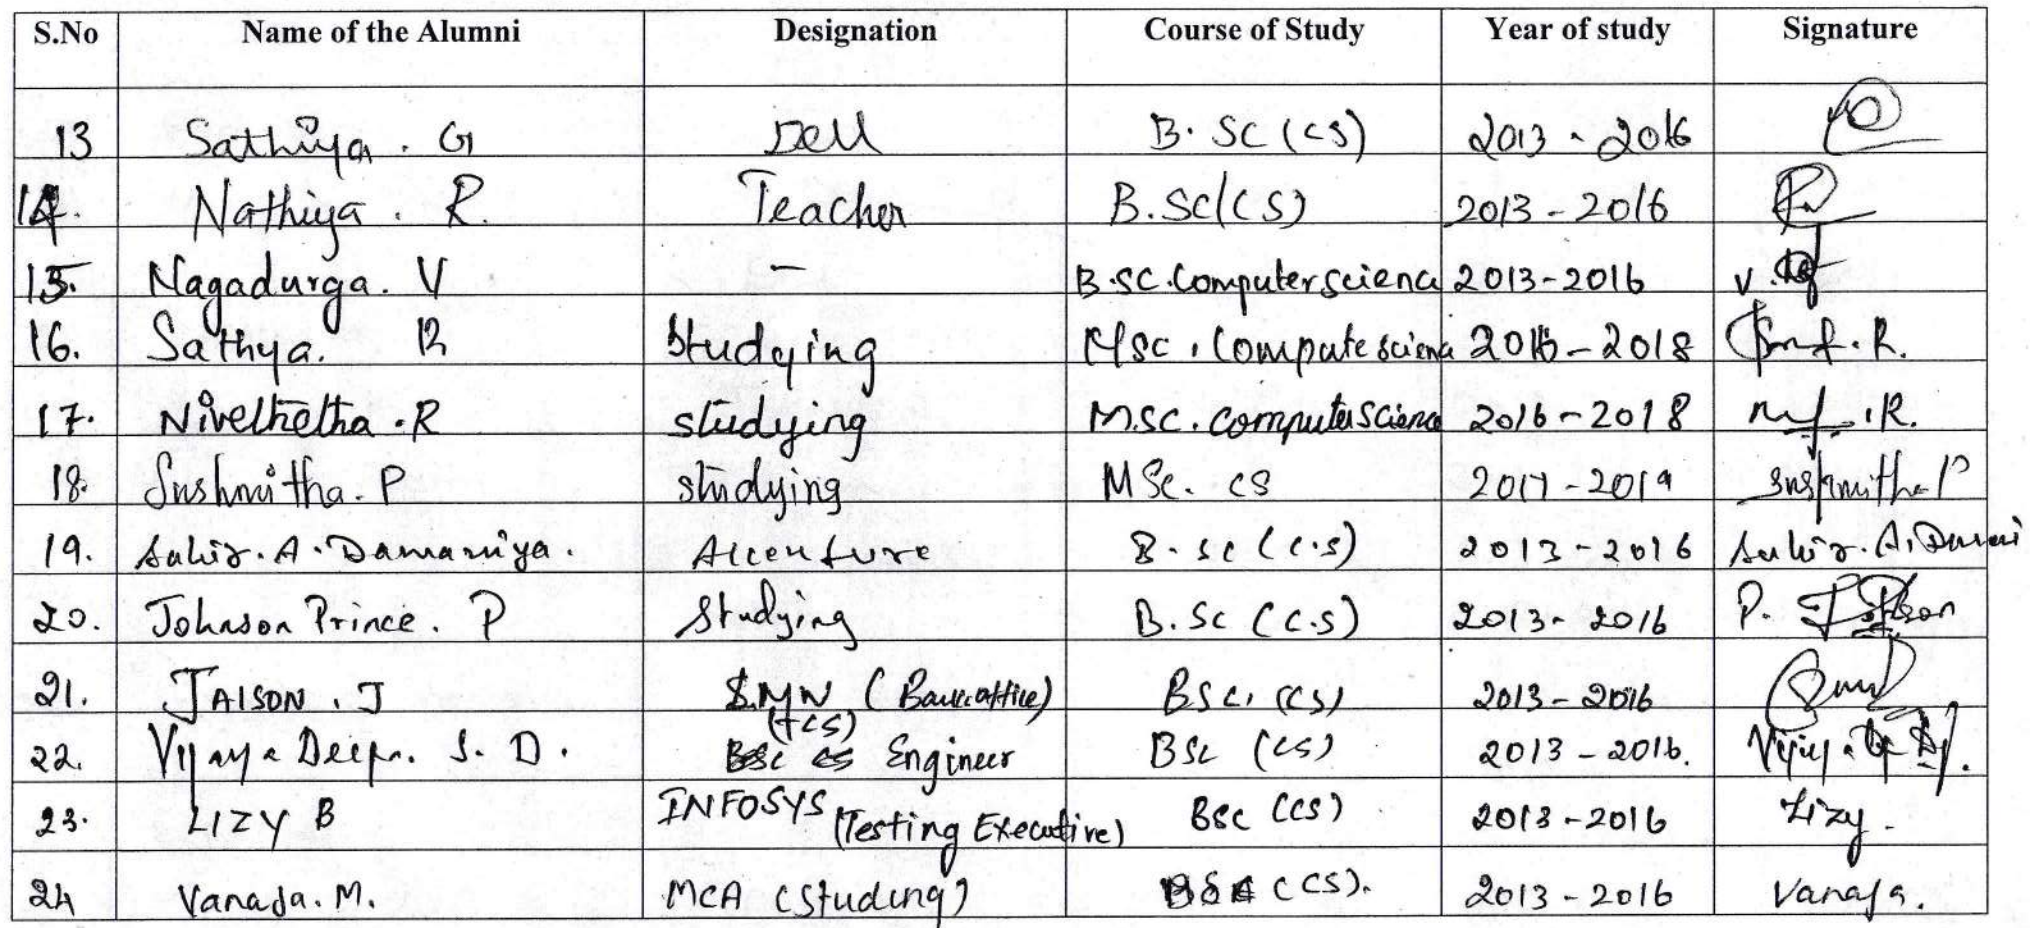 S.No Name of the Alumni Designation Course of Study Year of study Signature
13 Sathiya . G Dell B. SC (CS) 2013 - 2016
14. Nathiya . R. Teacher B.SC(CS) 2013 - 2016
15. Nagadurga. V - B.SC.Computerscienc 2013-2016 V.
16. Sathya. R Studying MSC. Compute scienc 2016-2018 R.
17. Nivelhetha .R studying M.SC. computerscience 2016-2018 .R.
18. Sushmitha. P studying MSc. CS 2017-2019 Sushmitha P
19. A. Damaniya. Accenture B. Sc (C.S) 2013-2016
20. Johnson Prince. P Studying B. Sc (C.S) 2013- 2016 P.
21. JAISON . J (Backoffice) BSc. (CS) 2013-2016
(TCS)
22. Vijaya Deepa. S. D. Engineer BSc (CS) 2013-2016.
23. LIZY B INFOSYS (Testing Executive) BSc (CS) 2013-2016 Lizy.
24 Vanaja. M. MCA (Studing) (CS). 2013-2016 Vanaja.